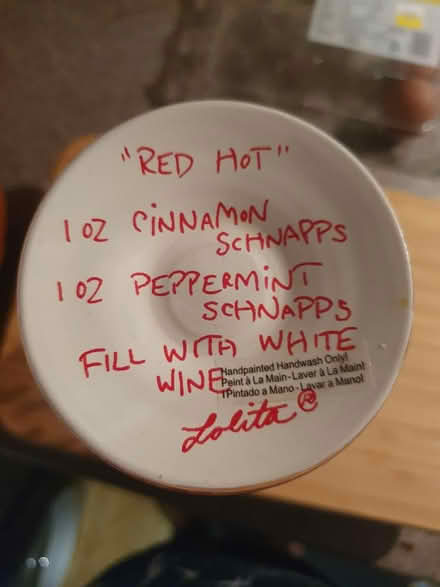 "RED HOT"
1 OZ CINNAMON
SCHNAPPS
1 OZ PEPPERMINT
SCHNAPPS
FILL WITH WHITE
WINE
Handpainted Handwash Only!
Peint à La Main-Laver à La Main!
Pintado a Mano-Lavar a Mano!
Lolita ®